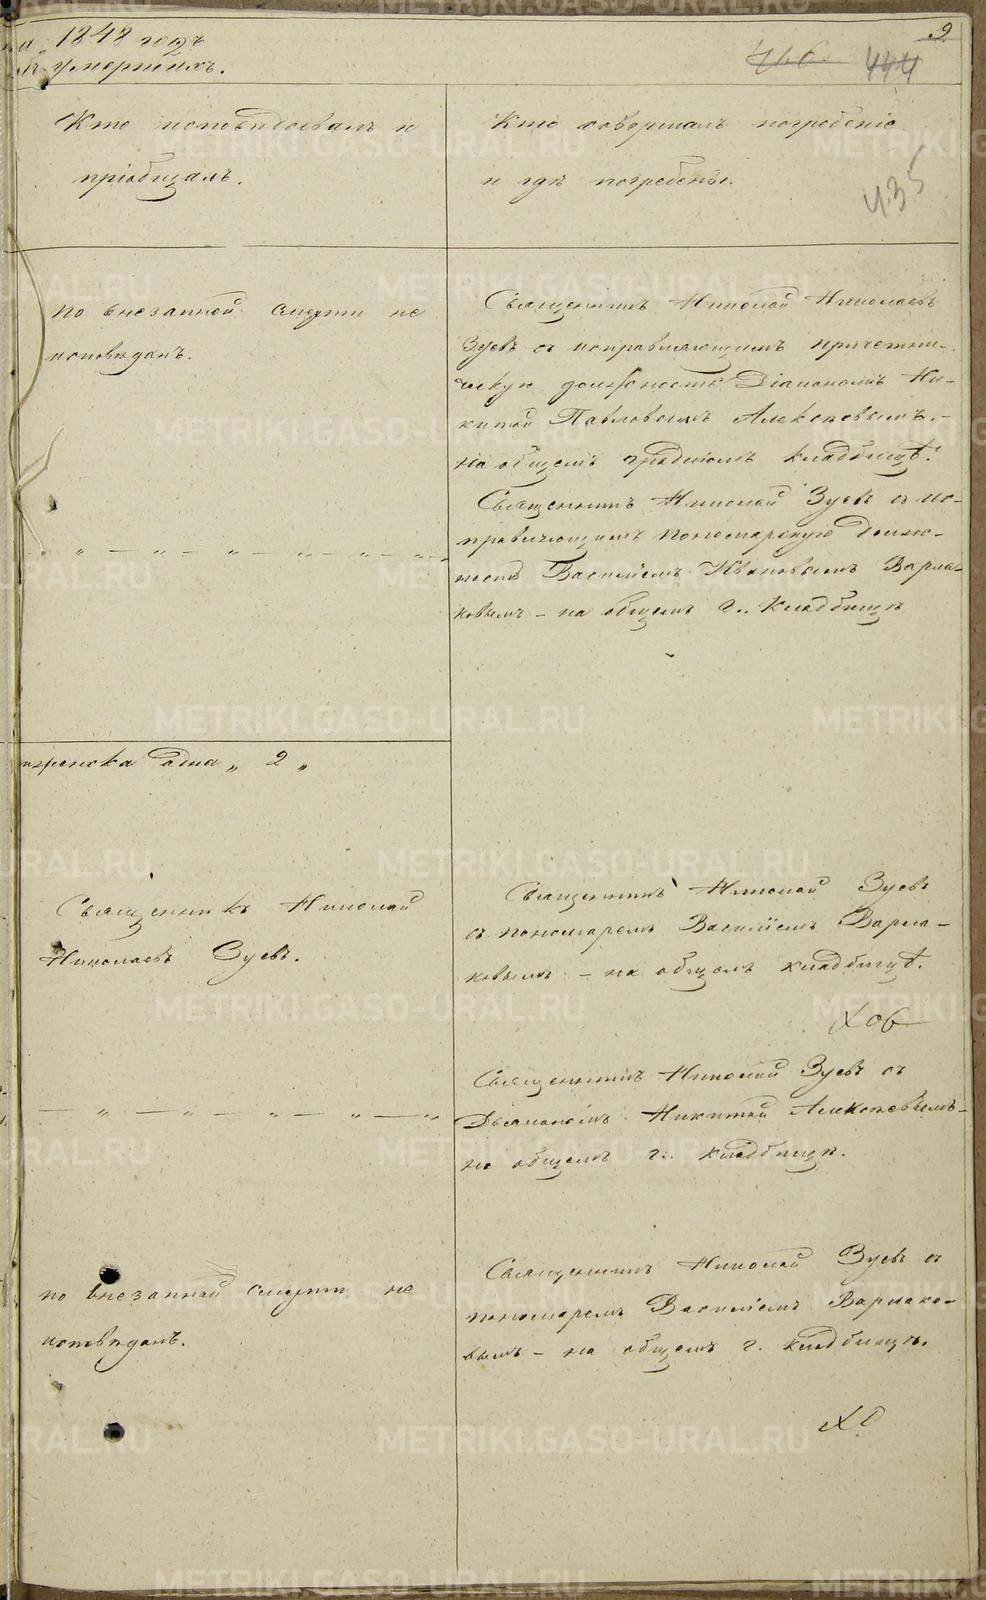 1848 годъ
умершихъ.
9
446
444
435
Кто исповѣдывалъ и
пріобщалъ.
Кто совершалъ погребеніе
и гдѣ погребены.
по внезапной смерти не
исповѣданъ.
Священникъ Николай Николаевъ
Зуевъ съ исправляющимъ причетни-
ческую должность Діакономъ Ни-
китой Павловымъ Алексѣевымъ.-
на общемъ градскомъ кладбищѣ.
Священникъ Николай Зуевъ съ ис-
правляющимъ пономарскую долж-
ность Василіемъ Ивановымъ Варла-
ковымъ - на общемъ г.. кладбищѣ
„ — „ — „ — „ — „ — „
одна „ 2 „
Священникъ Николай
Николаевъ Зуевъ.
Священникъ Николай Зуевъ
съ пономаремъ Василіемъ Варла-
ковымъ - на общемъ кладбищѣ.
— „ — „ — „ — „ — „
Священникъ Николай Зуевъ съ
Діакономъ Никитой Алексѣевымъ-
на общемъ г.. кладбищѣ.
по внезапной смерти не
исповѣданъ.
Священникъ Николай Зуевъ съ
пономаремъ Василіемъ Варлако-
вымъ - на общемъ г. кладбищѣ.
METRIKI.GASO-URAL.RU